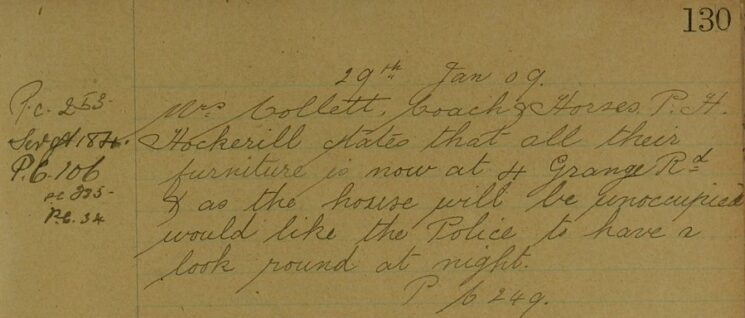 130
29th Jan 09.
P.C. 253
Mrs Collett, Coach & Horses P. H.
Sergt 18
Hockerill states that all their
P.C. 106
furniture is now at 4 Grange Rd
PC 225
& as the house will be unoccupied
P.C. 34
would like the Police to have a
look round at night.
P C 249.